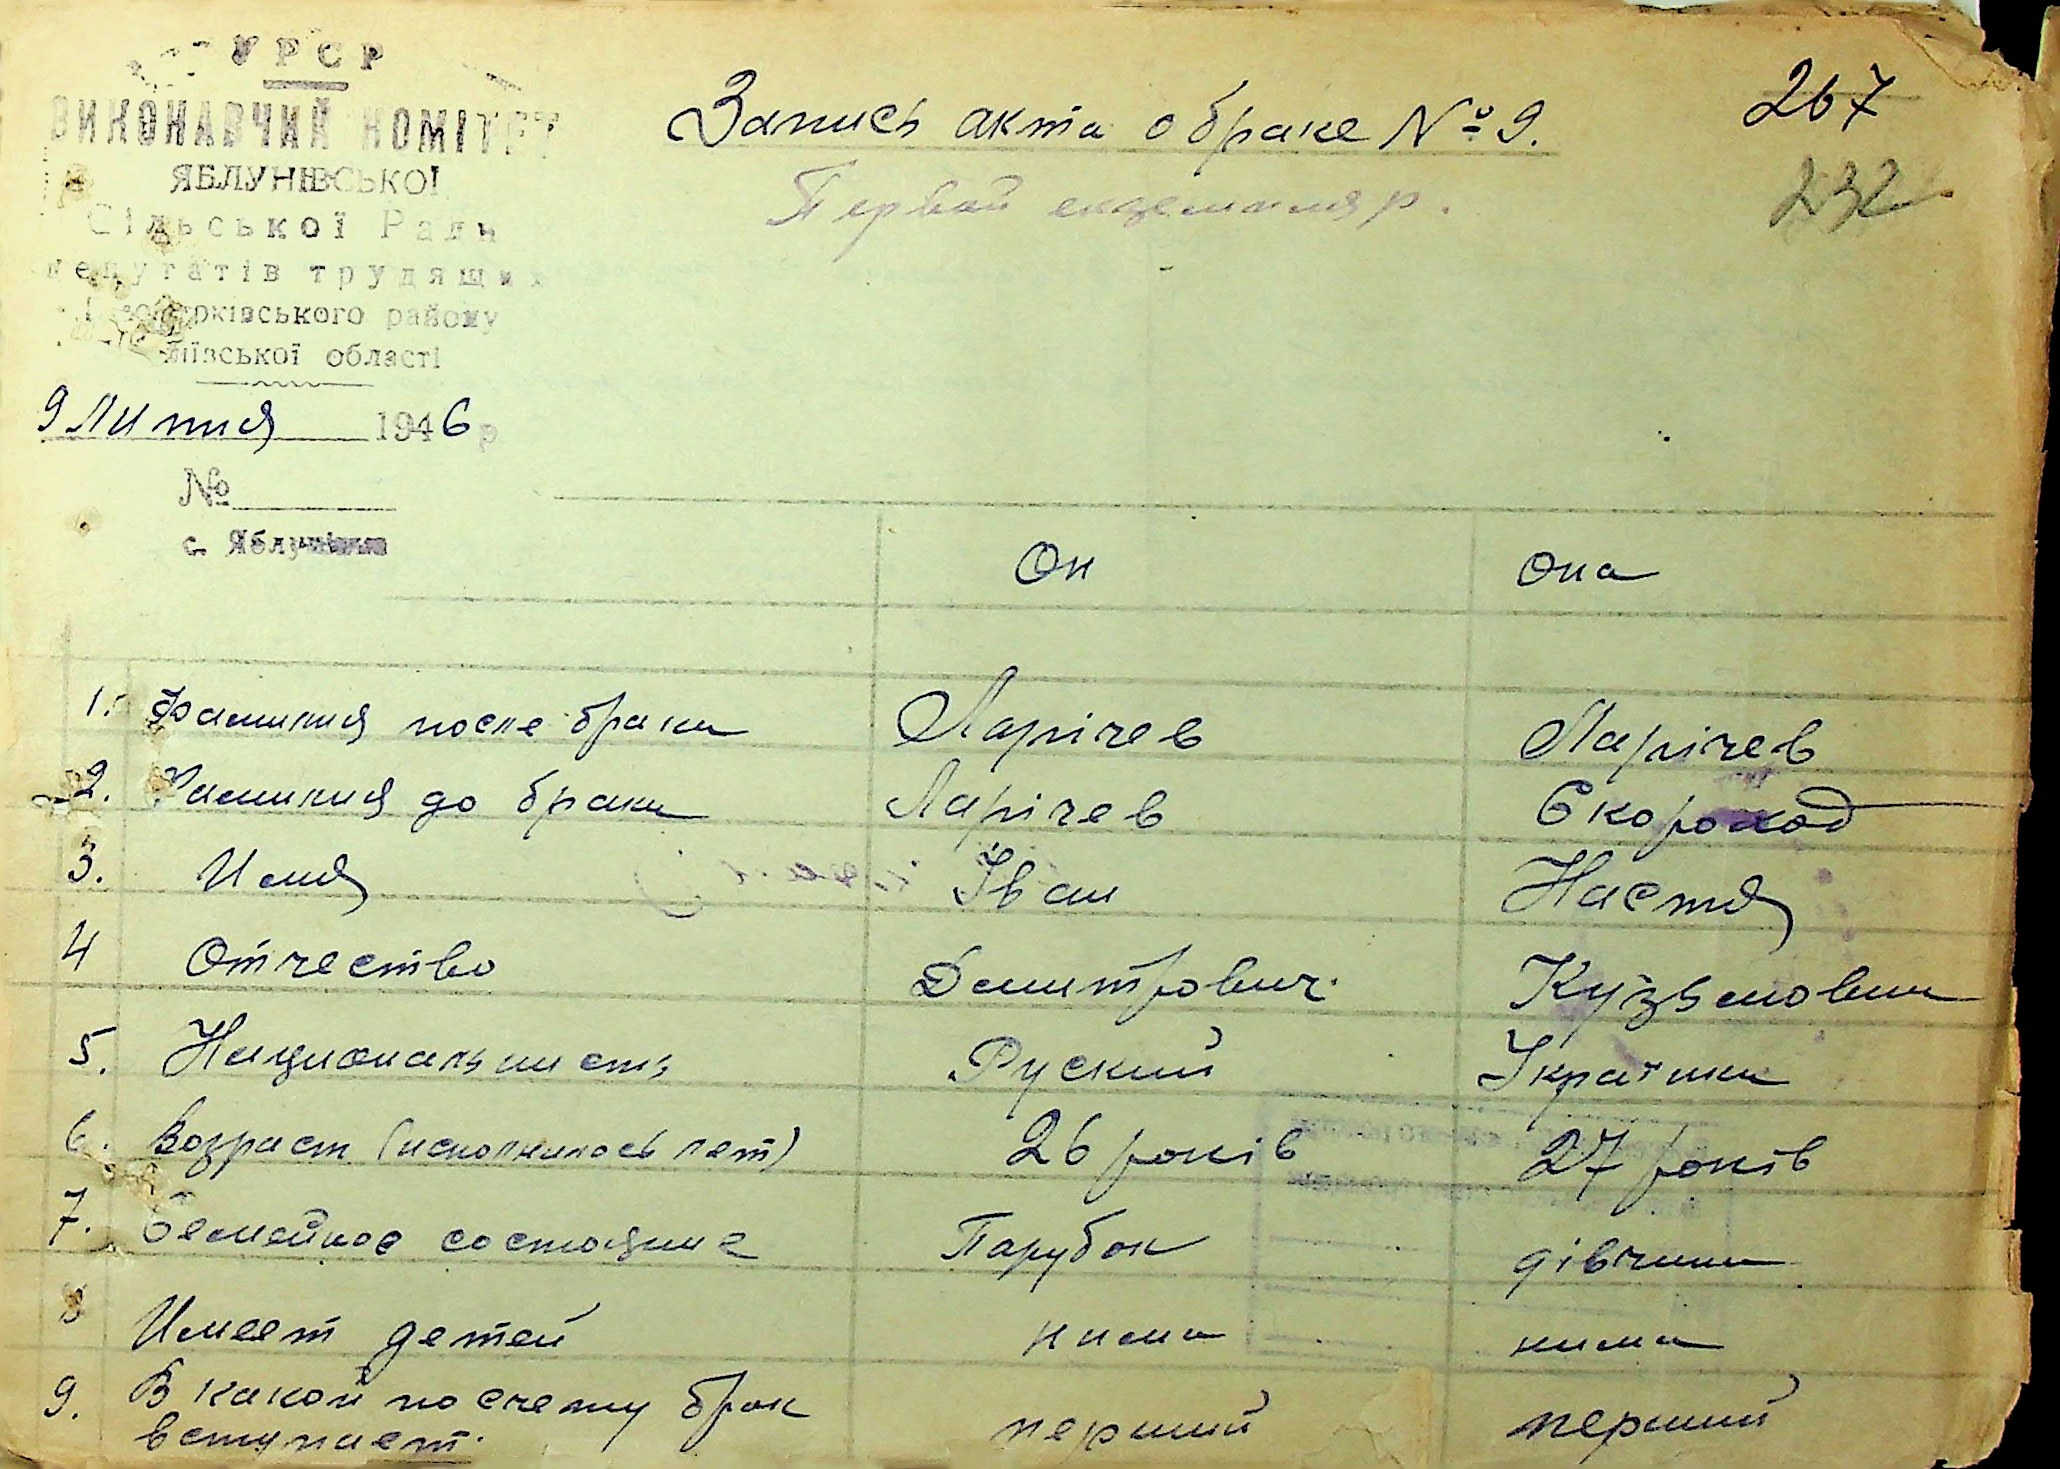 УРСР
ВИКОНАВЧИЙ КОМІТЕТ
ЯБЛУНІВСЬКОЇ
Сільської Ради
депутатів трудящих
Білоцерківського району
Київської області
9 Липня 1946 р
№
с. Яблунівка
Запись акта о браке № 9.
Первой екземпляр.
267
232
Он Она
1. Фамилия после брака Ларічев Ларічев
2. Фамилия до брака Ларічев Скороход
3. Имя Іван Настя
4 Отчество Дмитрович. Кузьмовна
5. Национальность Руский Українка
6. Возраст (исполнилось лет) 26 років 27 років
7. Семейное состояние Парубок дівчина
8 Имеет детей нима нима
9. В какой по счету брак
вступает. перший перший